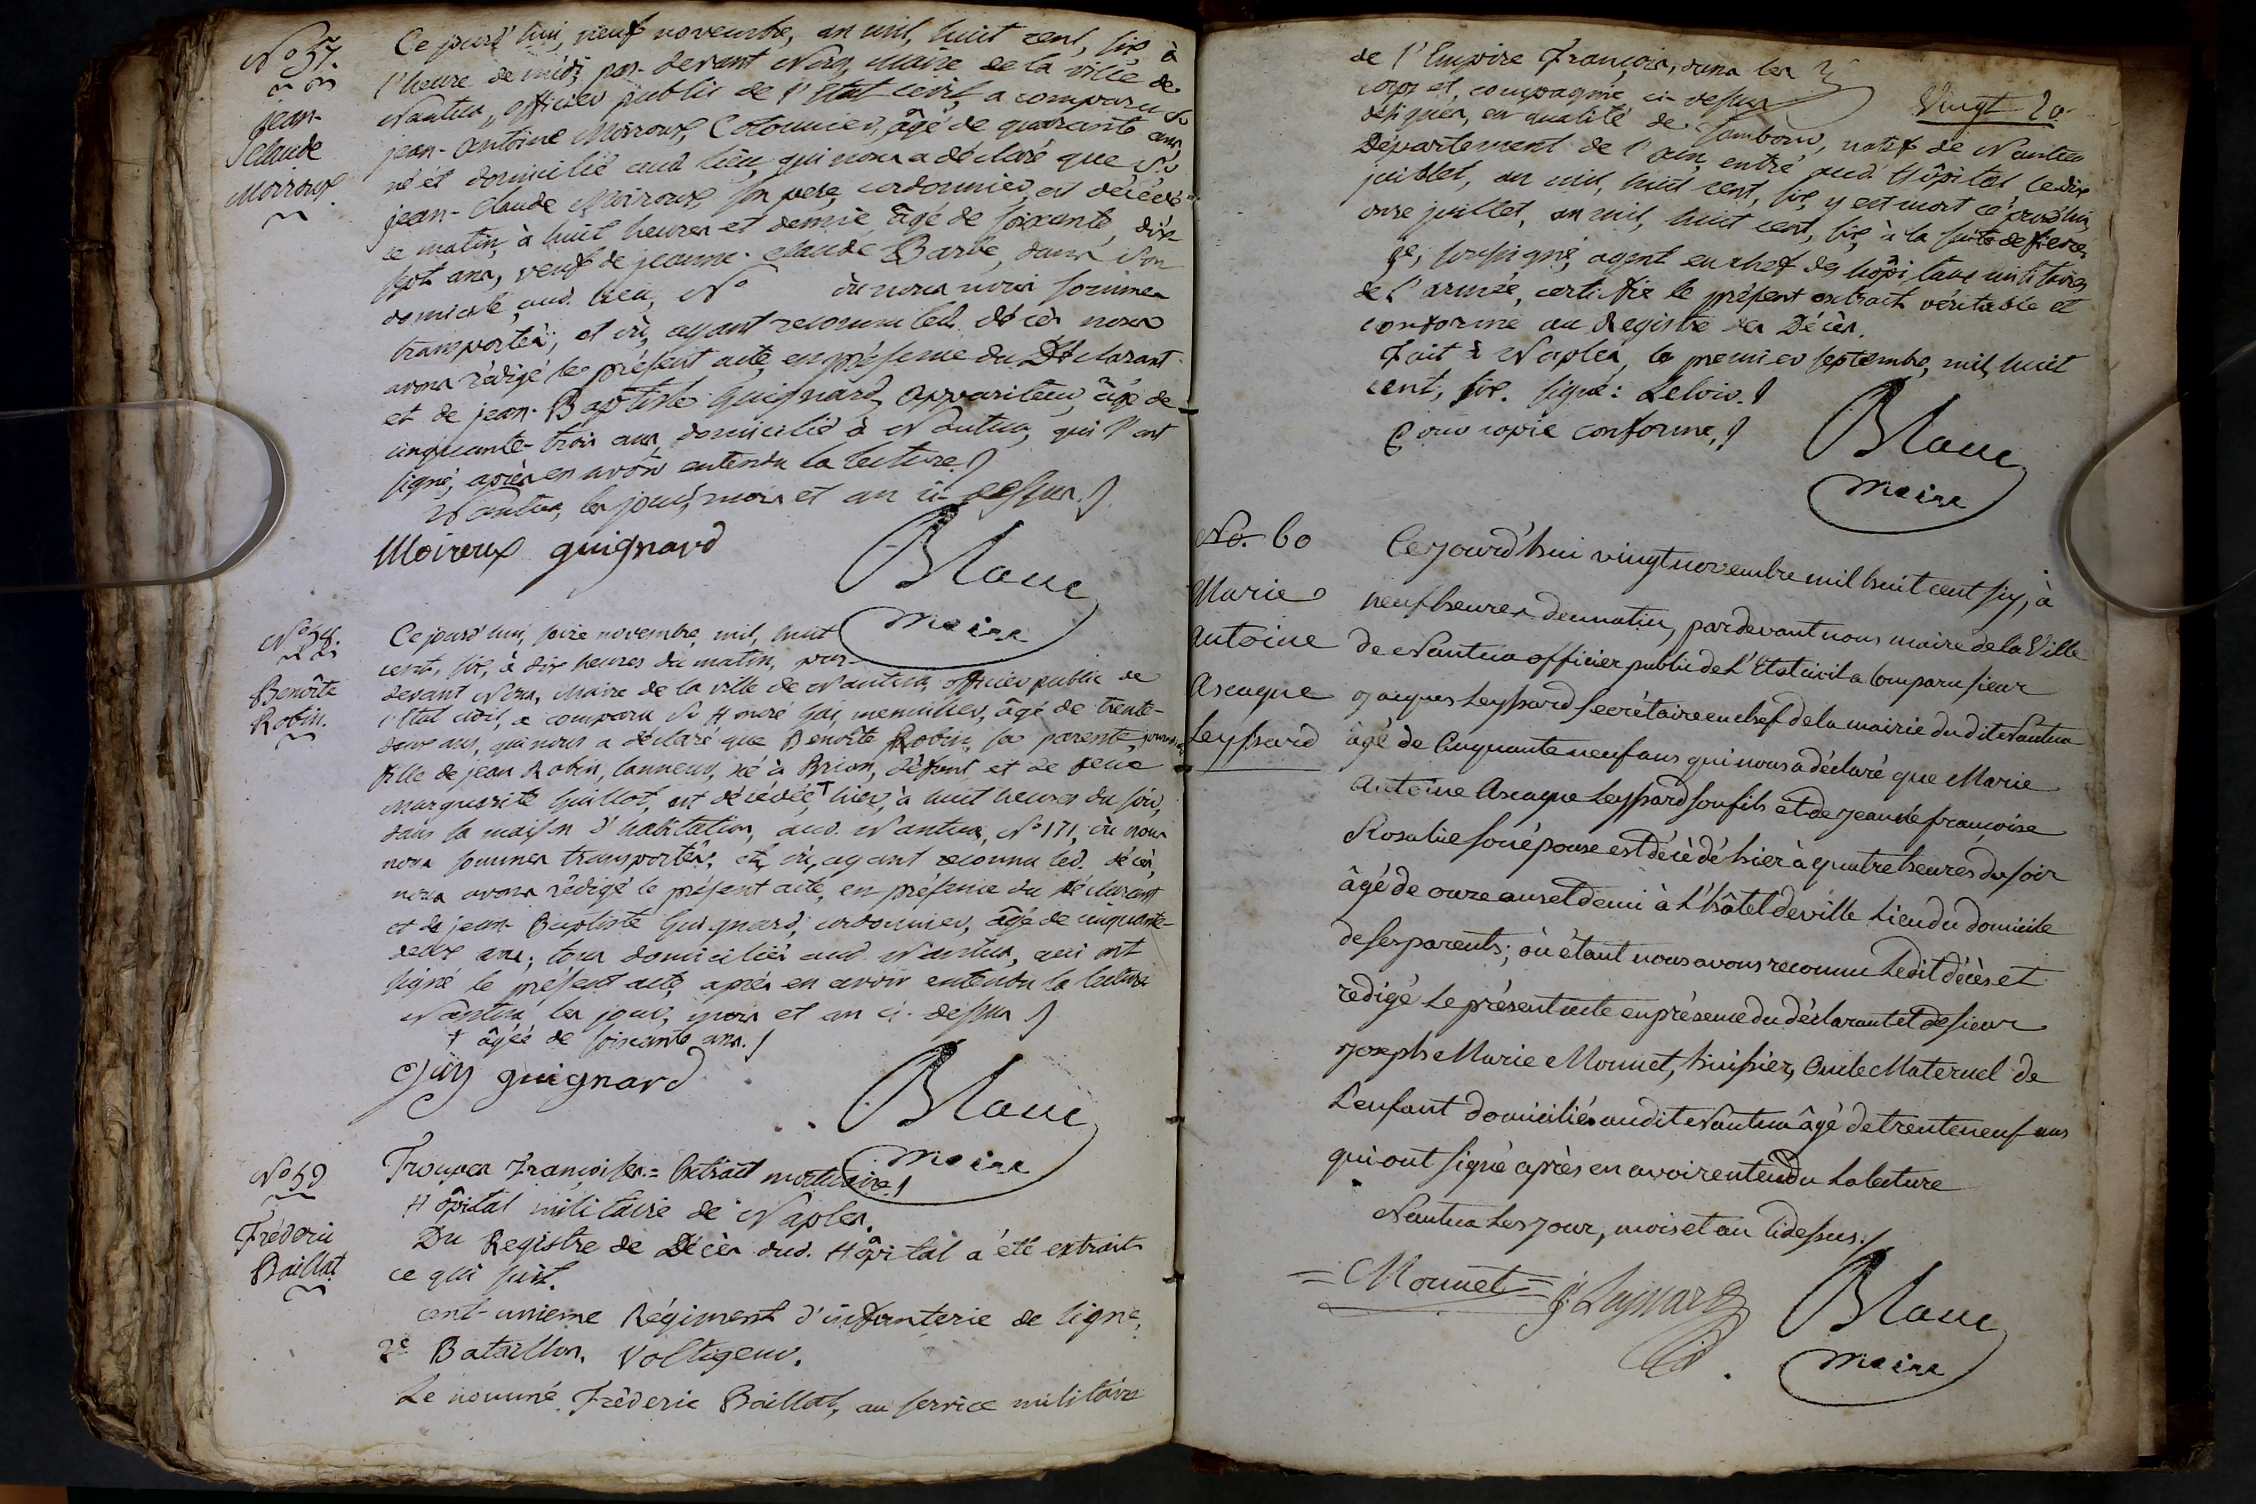 No 57.
jean-
Claude
Moiroux
Ce jourd'hui, neuf novembre, an mil, huit cent, six à
l'heure de midi, par-devant Nous, Maire de la ville de
Nantua, officier public de l'Etat civil, a comparu Sr
jean-Antoine Moiroux, Cotonnier, âgé de quarante ans
né et domicilié aud. lieu, qui nous a déclaré que Sr
jean-Claude Moiroux, son pere, cordonnier, est décédé
ce matin, à huit heures et demie, âgé de soixante, dix-
sept ans, veuf de jeanne-claude Barbe, dans son
domicile, aud. lieu, No où nous nous sommes
transportés, et où, ayant reconnu led. décès nous
avons rédigé le présent acte, en présence du Déclarant
et de jean-Baptiste Guignard, appariteur, âgé de
cinquante-trois ans, domicilié à Nantua, qui l'ont
signé, après en avoir entendu la lecture./
Nantua, les jour, mois et an ci-dessus./
Moiroux guignard
Blanc
maire
No 58.
Benoîte
Robin.
Ce jourd'hui, seize novembre, mil, huit
cent, six, à dix heures du matin, par-
devant Nous, Maire de la ville de Nantua, officier public de
l'Etat civil, a comparu Sr Honoré Guy, menuisier, âgé de trente-
deux ans, qui nous a déclaré que Benoîte Robin, sa parente,
fille de jean Robin, tanneur, né à Brion, défunt, et de feue
Marguerite Guillot, est décédée + hier, à huit heures du soir,
dans sa maison d'habitation, aud. Nantua, No 171, où nous
nous sommes transportés; et où, ayant reconnu led. décès,
nous avons rédigé le présent acte, en présence du déclarant
et de jean-Baptiste Guignard, cordonnier, âgé de cinquante-
deux ans; tous domiciliés aud. Nantua, qui ont
signé le présent acte, après en avoir entendu la lecture
Nantua les jour, mois et an ci-dessus./
+ âgée de soixante ans./
Guy guignard
Blanc
maire
No 59
Fréderic
Baillat
Troupes Françaises = Extrait mortuaire./
Hôpital militaire de Naples.
Du Registre de Décès dud. Hôpital a été extrait
ce qui suit.
cent-unieme Régiment d'infanterie de ligne,
2e Bataillon. Voltigeur.
Le nommé Fréderic Baillat, au service militaire
Vingt 20.
de l'Empire Français, dans les
corps et compagnie, ci-dessus
désignés, en qualité de Tambour, natif de Nantua
Département de l'ain, entré aud. Hôpital le dix
juillet, an mil, huit cent, six, y est mort ce jourd'hui,
onze juillet, an mil, huit cent, six, à la suite de fievre,
je, soussigné, agent en chef des hôpitaux militaires
de l'armée, certifie le présent extrait véritable et
conforme au Registre des Décès.
Fait à Naples, le premier septembre, mil, huit
cent, six. signé: Leloir./
Pour copie conforme,./
Blanc
maire
No. 60
Marie
Antoine
Ascagne
Leyssard
Cejourd'hui vingt novembre mil huit cent six, à
neuf heures du matin, pardevant nous maire de la Ville
de Nantua officier public de L'Etat civil a comparu sieur
jacques Leyssard secrétaire en chef de la mairie dudit Nantua
âgé de Cinquante neuf ans qui nous a déclaré que Marie
Antoine Ascagne Leyssard son fils et de jeanne françoise
Rosalie son épouse est décédé hier à quatre heures du soir
âgé de onze ans et demi à L'hôtel de ville Lieu du domicile
de ses parents; où étant nous avons reconnu Ledit décès et
redigé Le présent acte en présence du déclarant et de sieur
joseph Marie Monnet, huissier, Oncle Maternel de
L'enfant domiciliés audit Nantua âgé de trente neuf ans
qui ont signé après en avoir entendu La lecture
Nantua Les jour, mois et an Cidessus./
= Monnet = J. Leyssard
Blanc
maire